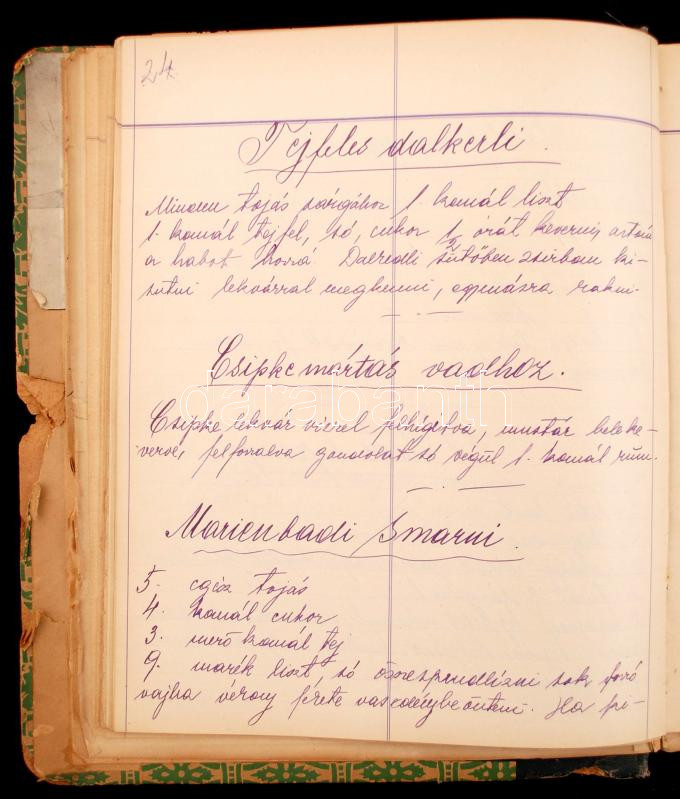 24
Tejfeles dalkerli.
Minden tojás sárgához 1. kanál liszt
1. kanál tejfel, só, cukor 1/2 órát keverni, aztán
a habot hozzá. Dalkedli sütőben zsírban ki-
sütni lekvárral megkenni, egymásra rakni.
Csipkemártás vadhoz.
Csipke lekvár vízzel felhígítva, mustár beleke-
verve, felforralva gondolat só végül 1. kanál rum.
Marienbadi smarni.
5. egész tojás
4. kanál cukor
3. merő kanál tej
9. marék liszt, só összesprudlizni sok forró
vajba vasedénybe önteni. Ha pi-
darabanth